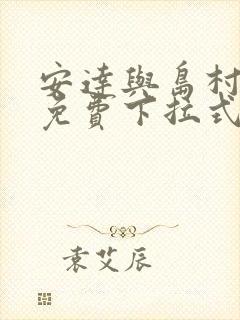 安達與島村
免費下拉式
袁艾辰